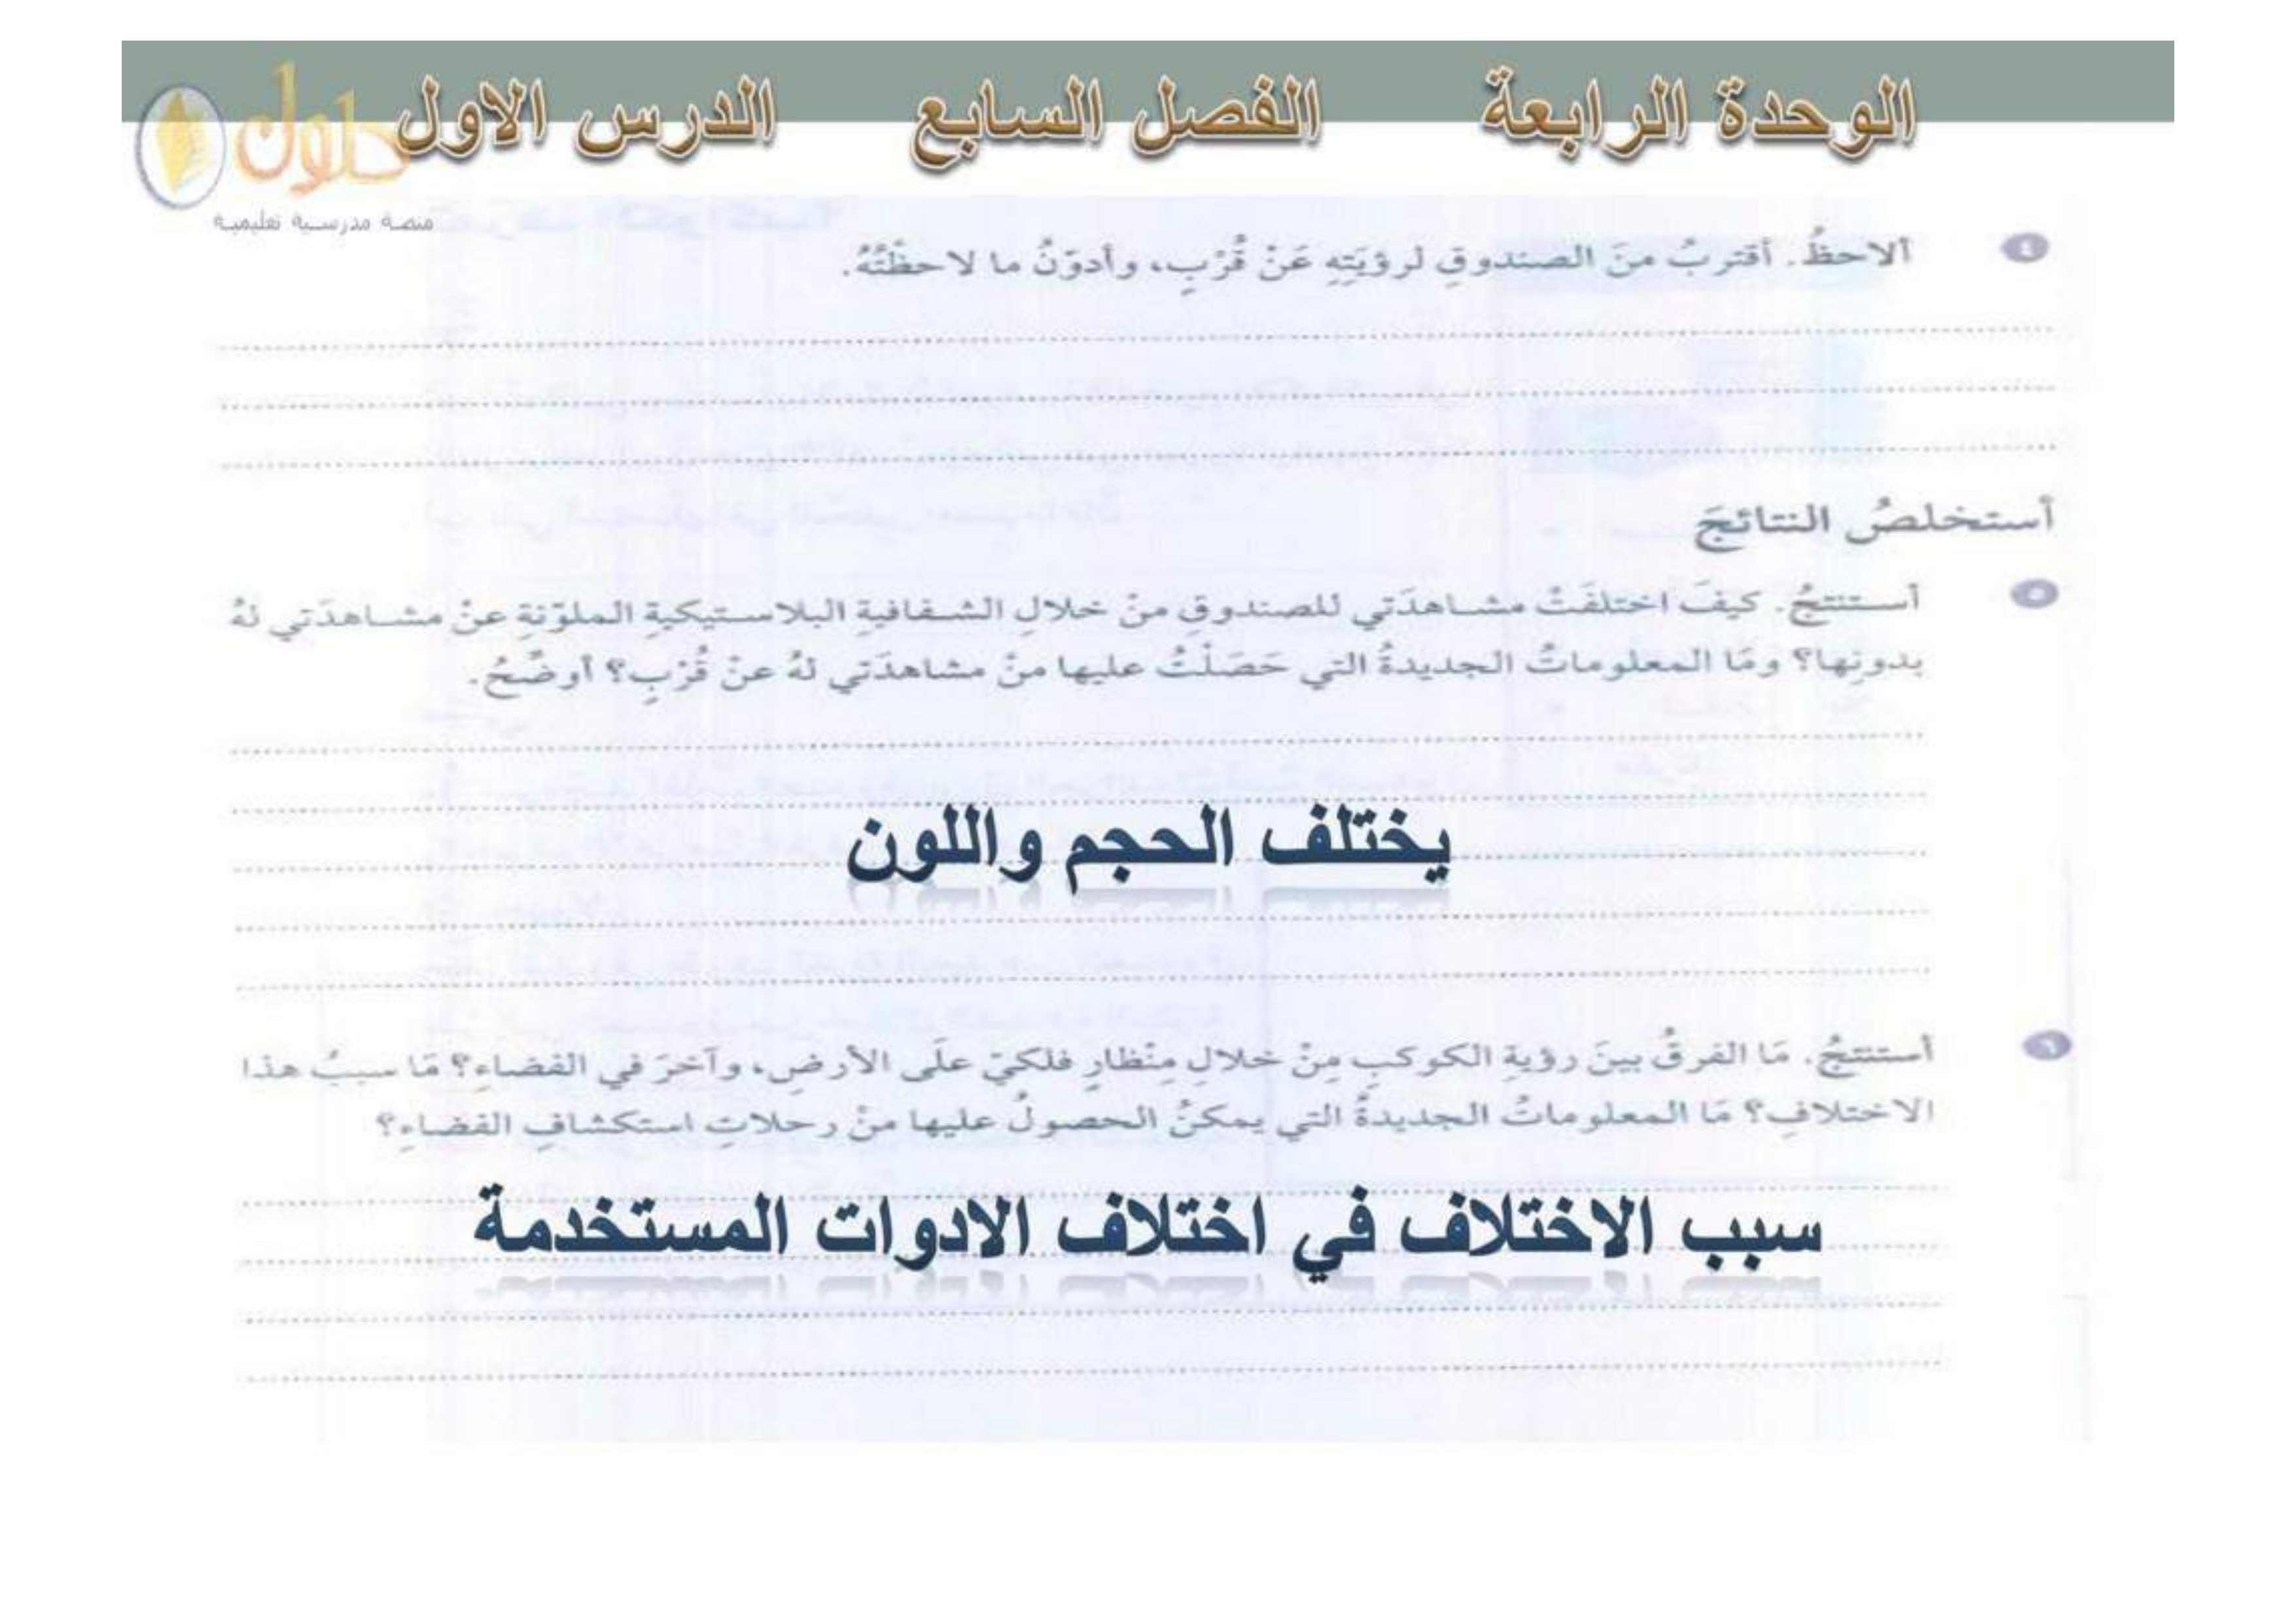 الوحدة الرابعة الفصل السابع الدرس الاول
حلول
منصة مدرسية تعليمية
٤ ألاحظُ. أقتربُ منَ الصندوقِ لرؤيَتِهِ عَنْ قُرْبٍ، وأدوّنُ ما لاحظْتُهُ.
أستخلصُ النتائجَ
٥ أستنتجُ. كيفَ اختلفَتْ مشاهدَتي للصندوقِ منْ خلالِ الشفافيةِ البلاستيكيةِ الملوّنةِ عنْ مشاهدَتي لهُ
بدونِها؟ ومَا المعلوماتُ الجديدةُ التي حَصَلْتُ عليها منْ مشاهدَتي لهُ عنْ قُرْبٍ؟ أوضّحُ.
يختلف الحجم واللون
٦ أستنتجُ. مَا الفرقُ بينَ رؤيةِ الكوكبِ مِنْ خلالِ مِنْظارٍ فلكيّ علَى الأرضِ، وآخرَ في الفضاءِ؟ مَا سببُ هذا
الاختلافِ؟ مَا المعلوماتُ الجديدةُ التي يمكنُ الحصولُ عليها منْ رحلاتِ استكشافِ الفضاءِ؟
سبب الاختلاف في اختلاف الادوات المستخدمة